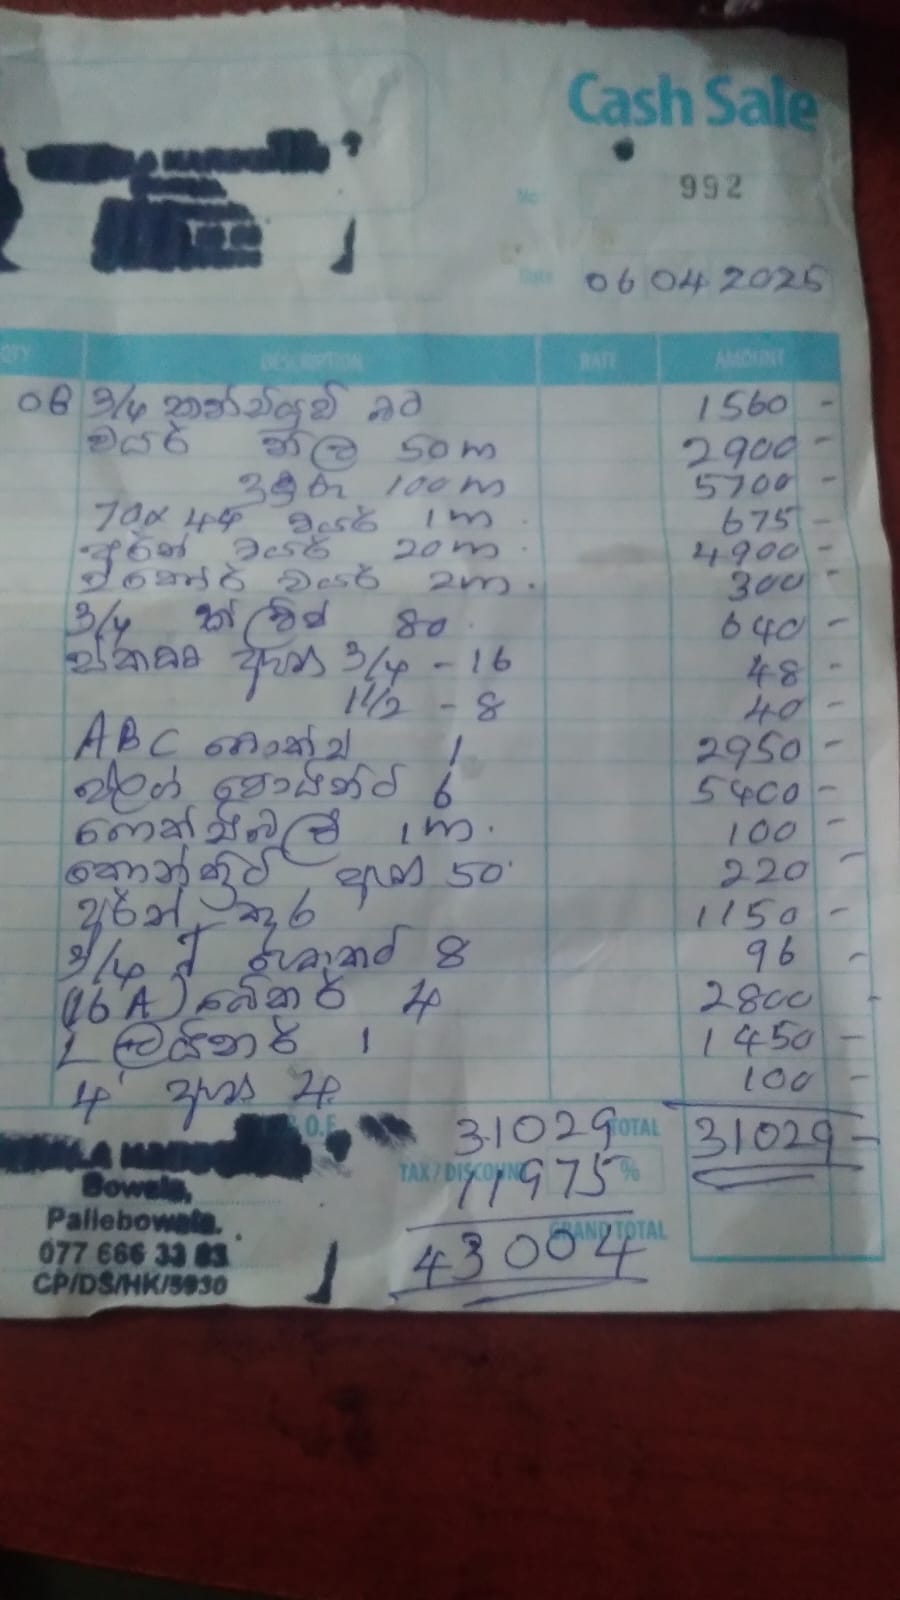 Cash Sale
No: 992
Date 06 04 2025
QTY DESCRIPTION RATE AMOUNT
06 3/4 කන්ඩියුට් බට 1560 -
වයර් නිල් 50m 2900 -
දුඹුරු 100m 5700 -
වයර් 1m 675 -
අර්ත් වයර් 20m 4900 -
වයර් 2m 300 -
3/4 ක්ලිප් 80 640 -
ඇණ 3/4 - 16 48 -
1 1/2 - 8 40 -
ABC 1 2950 -
ප්ලග් පොයින්ට් 6 5400 -
1m 100 -
කොන්ක්‍රීට් ඇණ 50 220 -
අර්ත් කූර 1150 -
3/4 8 96 -
(16A) බ්‍රේකර් 4 2800 -
1 1450 -
4' ඇණ 4 100 -
31029 TOTAL 31029 -
TAX / DISCOUNT 11975 %
GRAND TOTAL
43004
Bowala,
Pallebowala.
077 666 33 83
CP/DS/HK/5930